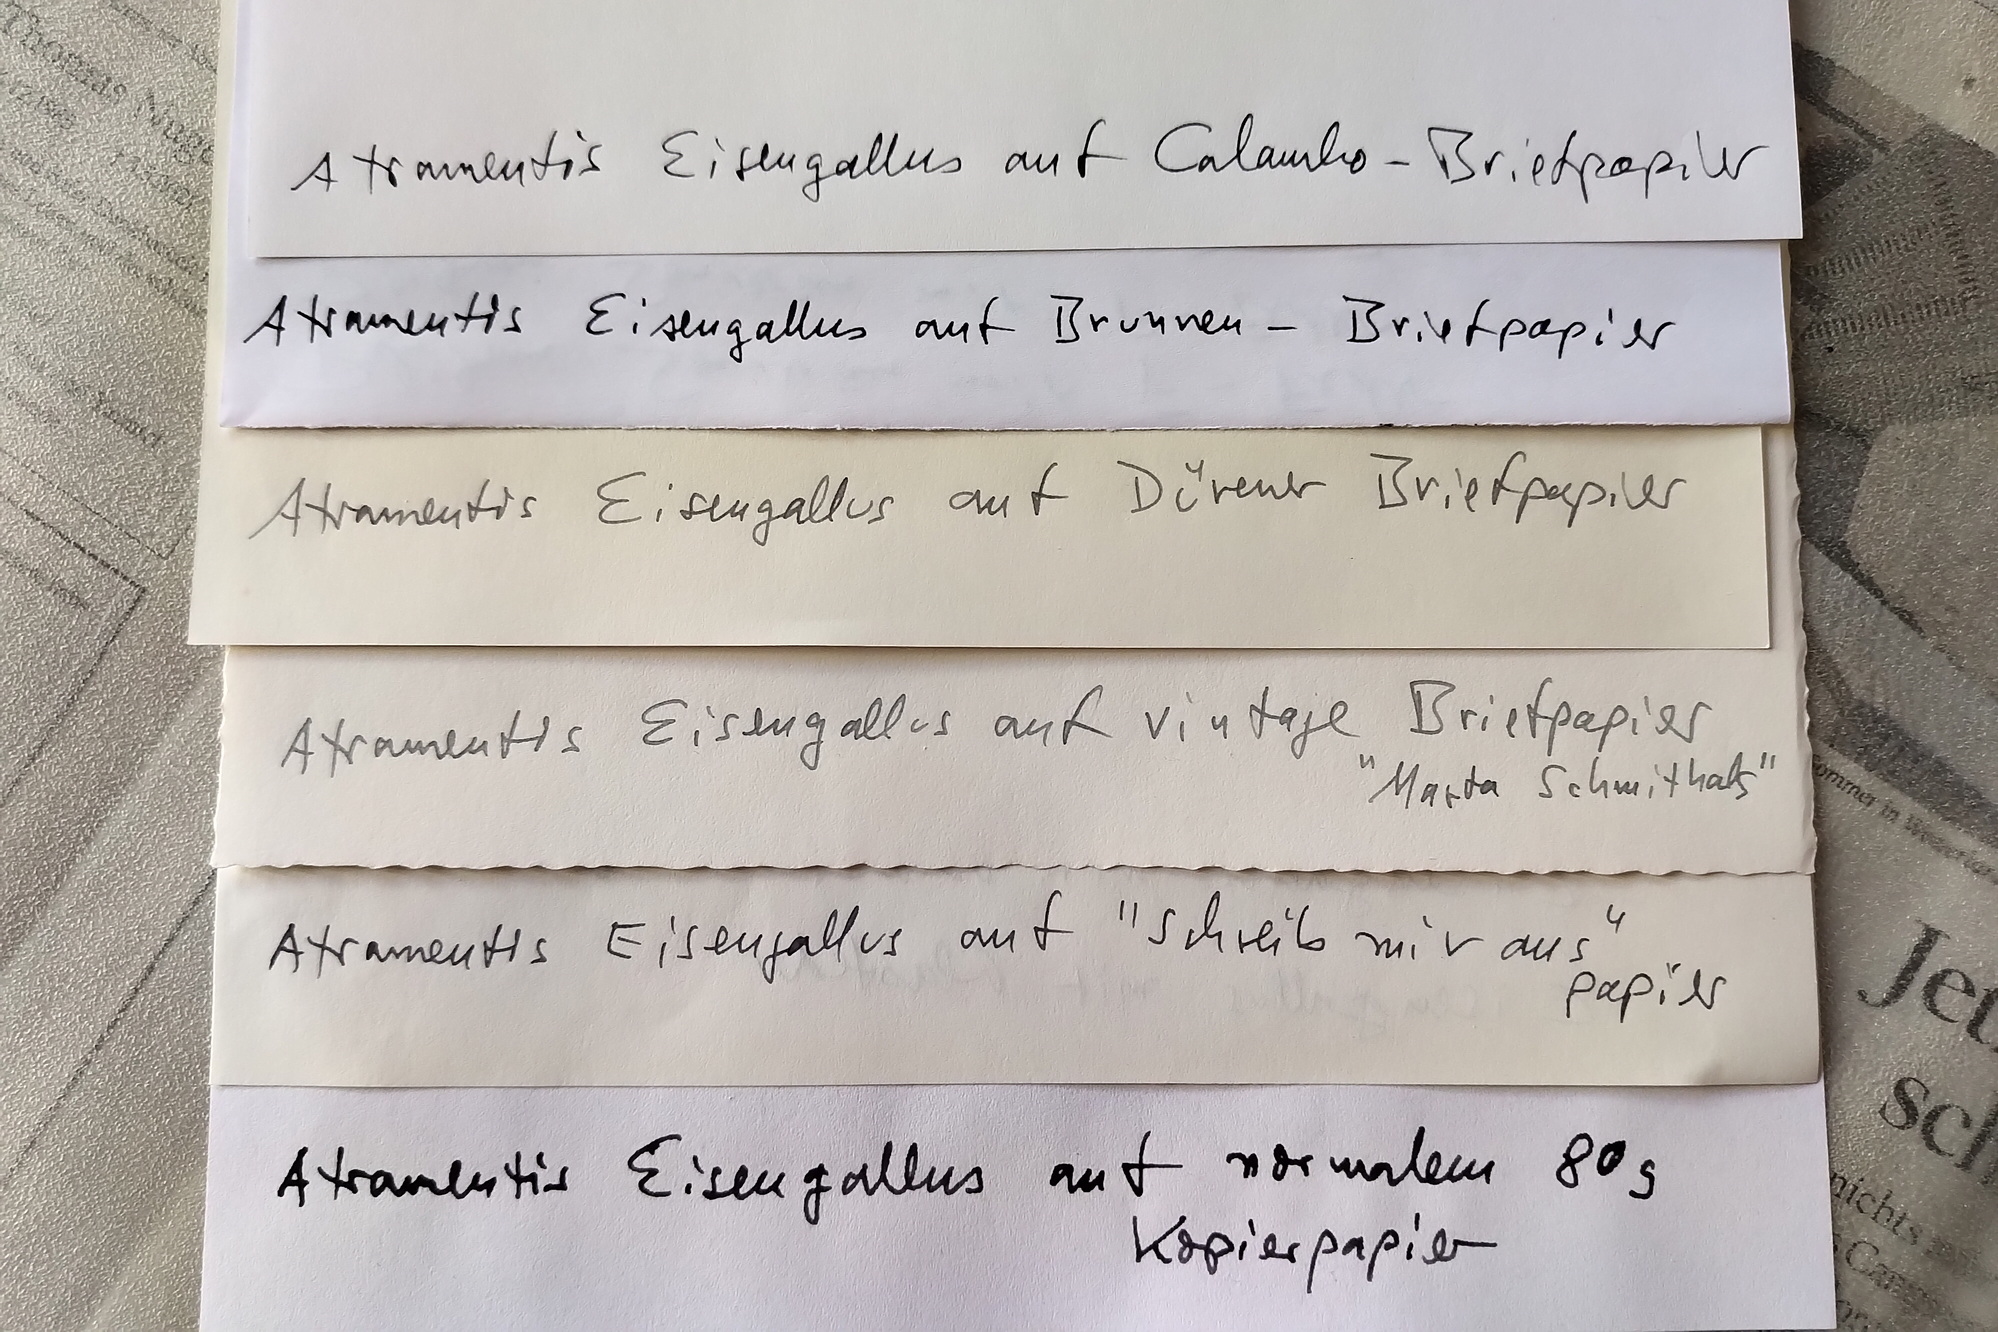 Atramentis Eisengallus auf Calambo-Briefpapier
Atramentis Eisengallus auf Brunnen-Briefpapier
Atramentis Eisengallus auf Dürener Briefpapier
Atramentis Eisengallus auf vintage Briefpapier
"Marta Schmithals"
Atramentis Eisengallus auf "Schreib mir aus"
papier
Atramentis Eisengallus auf normalem 80g
Kopierpapier
Jet
sch
nichts
ommer in
Thomas